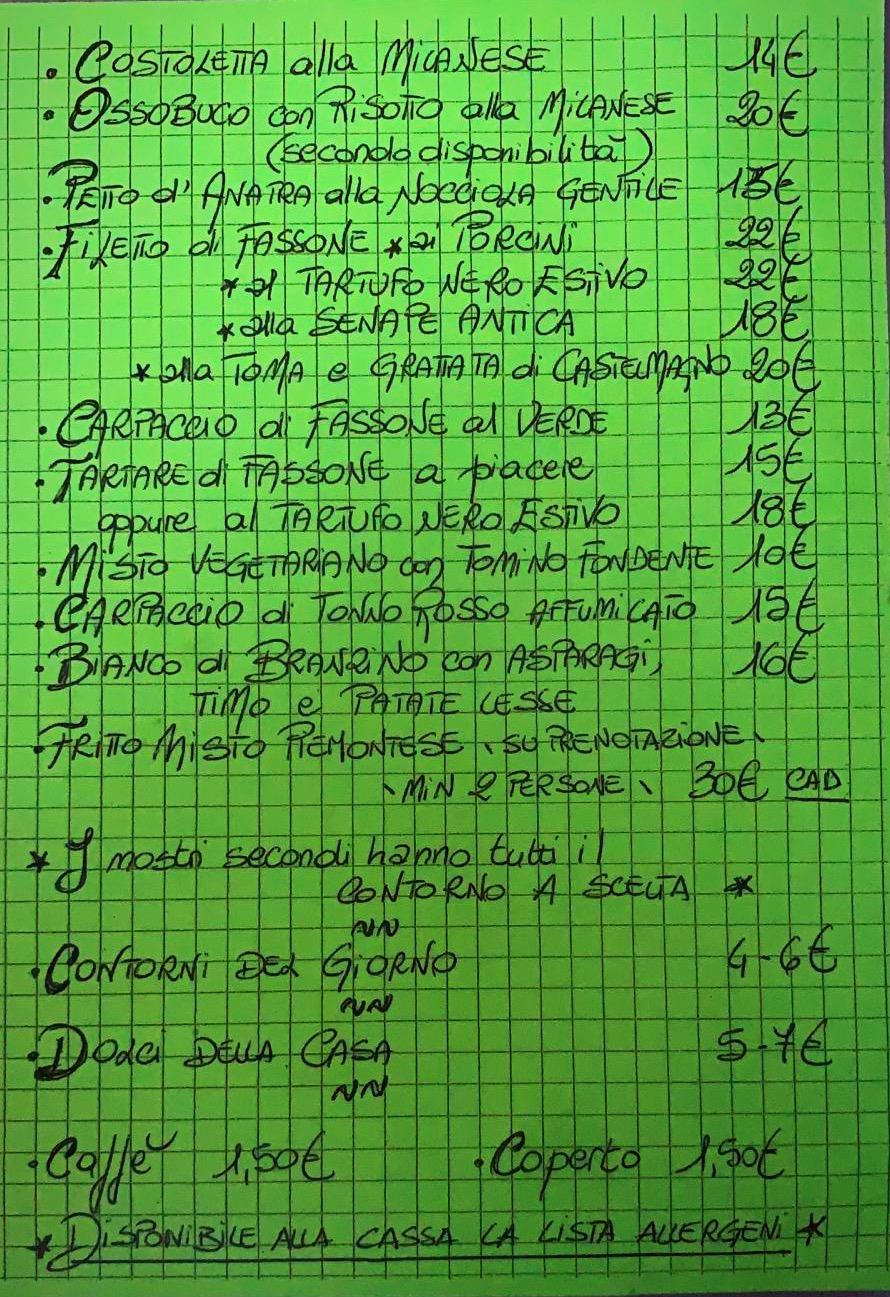 . COSTOLETTA alla MILANESE 14€
. OSSOBUCO con RISOTTO alla MILANESE 20€
(secondo disponibilità)
. PETTO d'ANATRA alla NOCCIOLA GENTILE 15€
. FILETTO di FASSONE * ai PORCINI 22€
* al TARTUFO NERO ESTIVO 22€
* alla SENAPE ANTICA 18€
* alla TOMA e GRATTATA di CASTELMAGNO 20€
. CARPACCIO di FASSONE al VERDE 13€
. TARTARE di FASSONE a piacere 15€
oppure al TARTUFO NERO ESTIVO 18€
. MISTO VEGETARIANO con TOMINO FONDENTE 10€
. CARPACCIO di TONNO ROSSO AFFUMICATO 15€
. BIANCO di BRANZINO con ASPARAGI, 16€
TIMO e PATATE LESSE
. FRITTO MISTO PIEMONTESE \ SU PRENOTAZIONE \
\ MIN 2 PERSONE \ 30€ CAD
* I nostri secondi hanno tutti il
CONTORNO A SCELTA *
~~
. CONTORNI DEL GIORNO 4-6€
~~
. DOLCI DELLA CASA 5-7€
~~
. Caffè 1,50€ . Coperto 1,50€
* DISPONIBILE ALLA CASSA LA LISTA ALLERGENI *